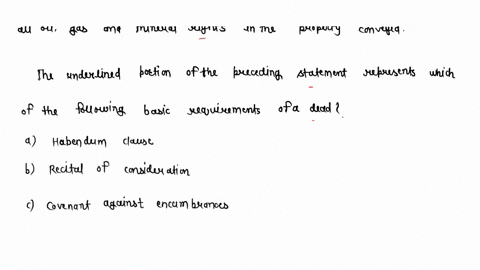 all oil, gas and mineral rights in the property conveyed.
The underlined portion of the preceding statement represents which
of the following basic requirements of a dead?
a) Habendum clause
b) Recital of consideration
c) Covenant against encumbrances